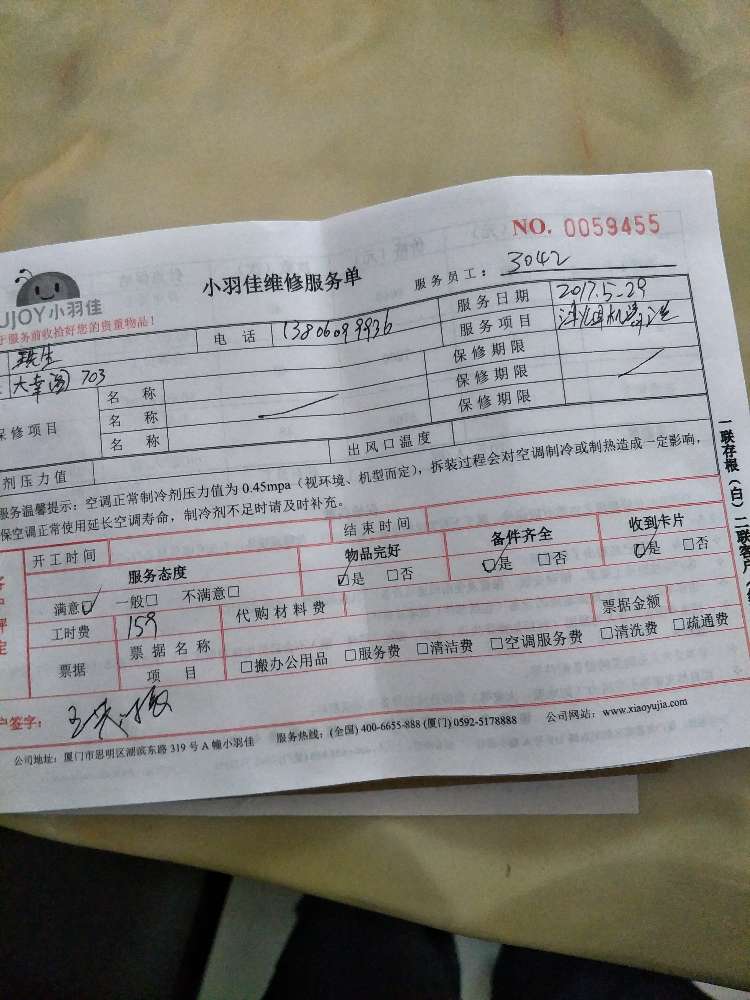 NO. 0059455
小羽佳维修服务单
服务员工：3042
UJOY小羽佳
于服务前收拾好您的贵重物品！
电 话 13806099936
服务日期 2017.5.29
服务项目
大幸阁 703
保修期限
保修期限
保修期限
保修项目
名 称
名 称
名 称
剂压力值
出风口温度
服务温馨提示：空调正常制冷剂压力值为 0.45mpa（视环境、机型而定），拆装过程会对空调制冷或制热造成一定影响，
保空调正常使用延长空调寿命，制冷剂不足时请及时补充。
开工时间
结束时间
服务态度 物品完好 备件齐全 收到卡片
满意☑ 一般□ 不满意□ ☑是 □否 ☑是 □否 ☑是 □否
工时费 159 代购材料费
票据 票据名称 票据金额
项 目 □搬办公用品 □服务费 □清洁费 □空调服务费 □清洗费 □疏通费
户签字：
公司地址：厦门市思明区湖滨东路 319 号 A 幢小羽佳 服务热线：(全国) 400-6655-888 (厦门) 0592-5178888 公司网站：www.xiaoyujia.com
一联存根（白）二联客户